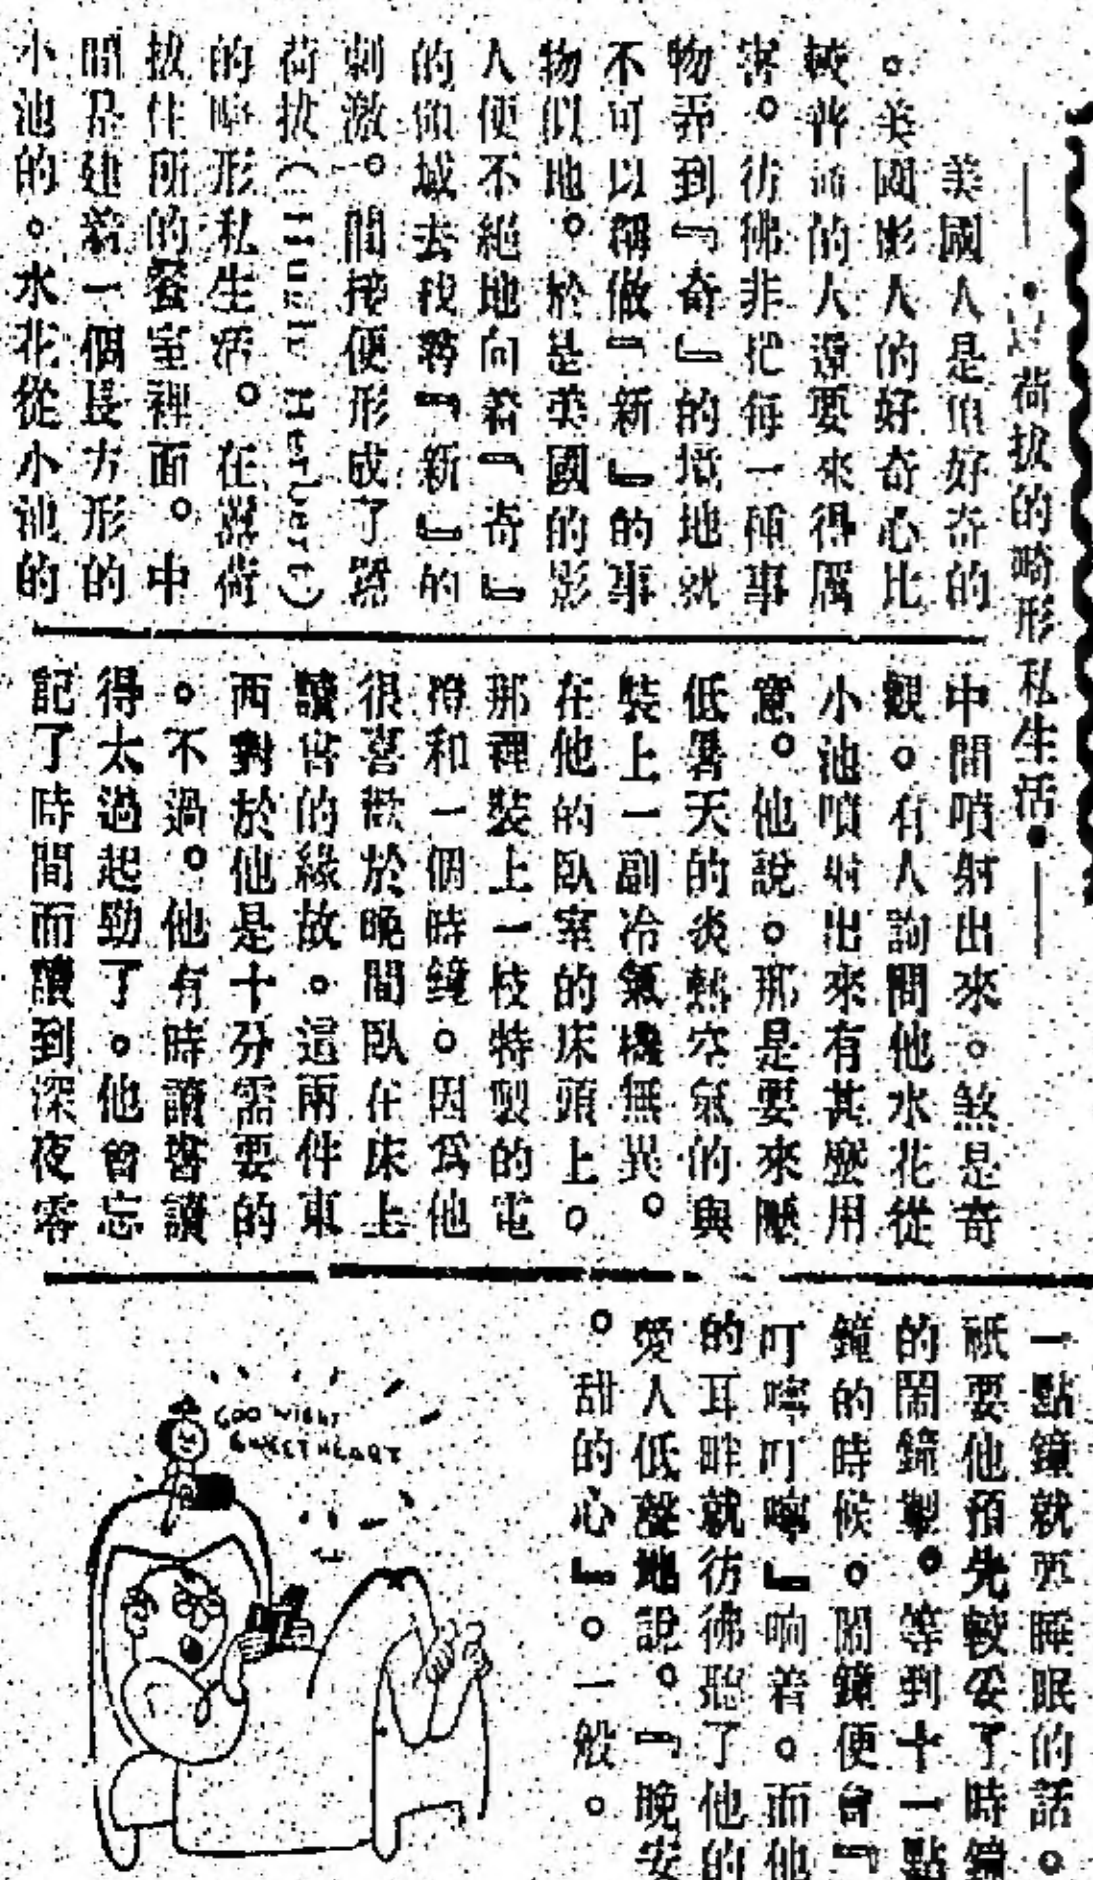 荷拔的畸形私生活
美國人是頂好奇的
。美國影人的好奇心比
較普通的人還要來得厲
害。彷彿非把每一種事
物弄到『奇』的境地就
不可以稱做『新』的事
物似地。於是美國的影
人便不絕地向着『奇』
的領域去找尋『新』的
刺激。間接便形成了
荷拔(Hugh Herbert)
的畸形私生活。在荷
拔住所的餐室裡面。中
間是建着一個長方形的
小池的。水花從小池的
中間噴射出來。煞是奇
觀。有人詢問他水花從
小池噴射出來有甚麼用
意。他說。那是要來壓
低暑天的炎熱空氣的與
裝上一副冷氣機無異。
在他的臥室的床頭上。
那裡裝上一枝特製的電
燈和一個時鐘。因爲他
很喜歡於晚間臥在床上
讀書的緣故。這兩件東
西對於他是十分需要的
。不過。他有時讀書讀
得太過起勁了。他曾忘
記了時間而讀到深夜零
一點鐘就要睡眠的話。
祗要他預先較妥了時鐘
的鬧鐘掣。等到十一點
鐘的時候。鬧鐘便會『
叮嚀叮嚀』响着。而他
的耳畔就彷彿聽了他的
愛人低聲地說。『晚安
。甜的心』。一般。
GOO NIGHT
SWEETHEART